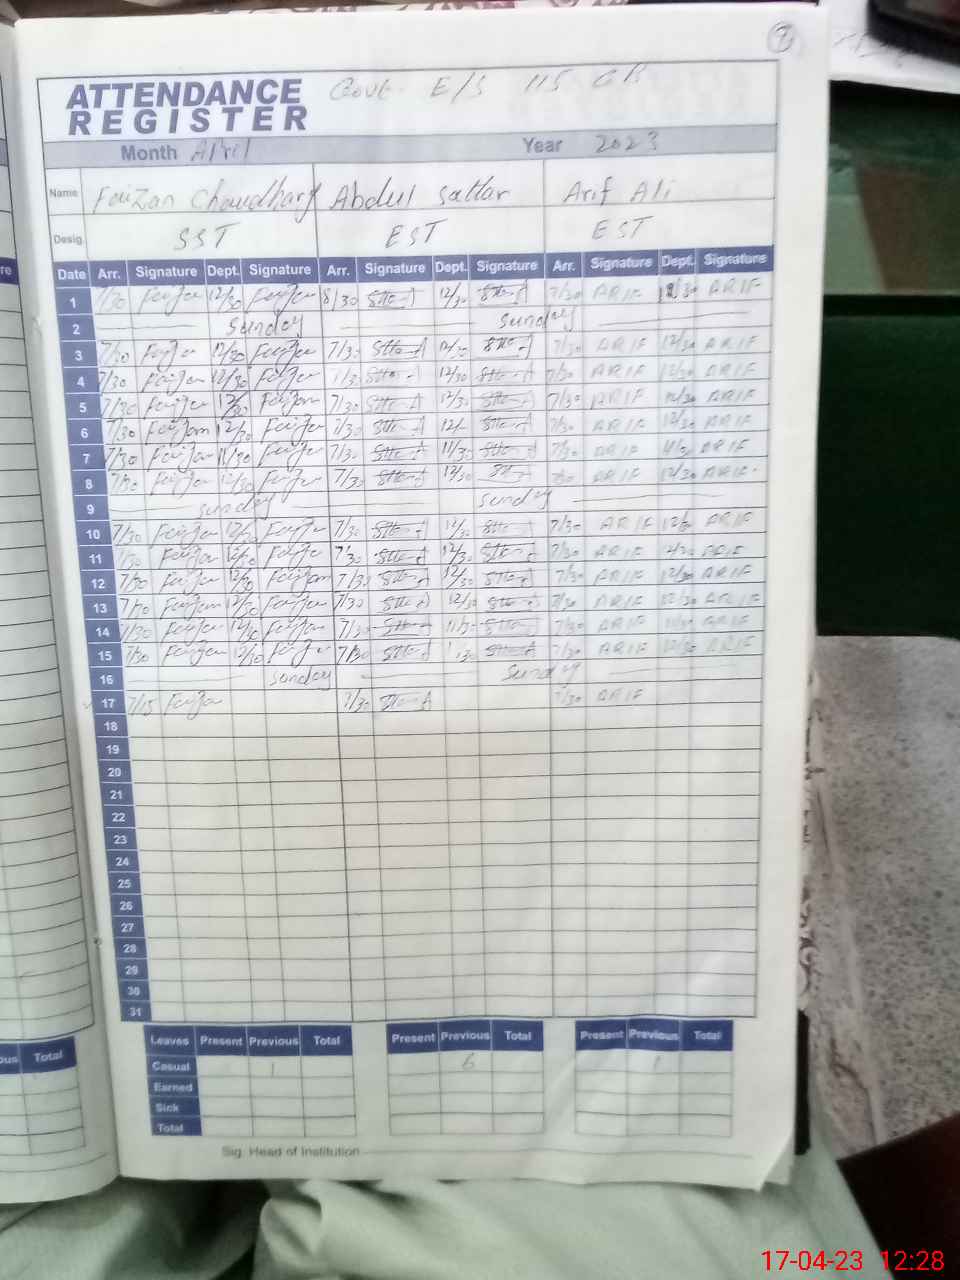 9
ATTENDANCE REGISTER Govt. E/S 115 GB
Month April Year 2023
Name Faizan Chowdhary Abdul Sattar Arif Ali
Desig. SST EST EST
Date Arr. Signature Dept. Signature Arr. Signature Dept. Signature Arr. Signature Dept. Signature
1 7/30 Faizan 12/30 Faizan 8/30 12/30 7/30 ARIF 12/30 ARIF
2 Sunday Sunday
3 7/30 Faizan 12/30 Faizan 7/30 12/30 7/30 ARIF 12/30 ARIF
4 7/30 Faizan 12/30 Faizan 7/30 12/30 7/30 ARIF 12/30 ARIF
5 7/30 Faizan 12/30 Faizan 7/30 12/30 7/30 ARIF 12/30 ARIF
6 7/30 Faizan 12/30 Faizan 7/30 7/30 ARIF 12/30 ARIF
7 7/30 Faizan 11/30 Faizan 7/30 11/30 7/30 ARIF ARIF
8 7/30 Faizan 12/30 Faizan 7/30 12/30 ARIF 12/30 ARIF
9 Sunday Sunday
10 7/30 Faizan 12/30 Faizan 7/30 12/30 7/30 ARIF 12/30 ARIF
11 7/30 Faizan 12/30 Faizan 7/30 12/30 7/30 ARIF 12/30 ARIF
12 7/30 Faizan 12/30 Faizan 7/30 12/30 7/30 ARIF 12/30 ARIF
13 7/30 Faizan 12/30 Faizan 7/30 12/30 7/30 ARIF 12/30 ARIF
14 7/30 Faizan Faizan 7/30 11/30 7/30 ARIF 11/30 ARIF
15 7/30 Faizan 12/30 Faizan 7/30 7/30 ARIF 12/30 ARIF
16 Sunday Sunday
17 7/15 Faizan 7/30 7/30 ARIF
18
19
20
21
22
23
24
25
26
27
28
29
30
31
Leaves Present Previous Total Present Previous Total Present Previous Total
Casual 1 6 1
Earned
Sick
Total
Sig. Head of Institution
Total
17-04-23 12:28